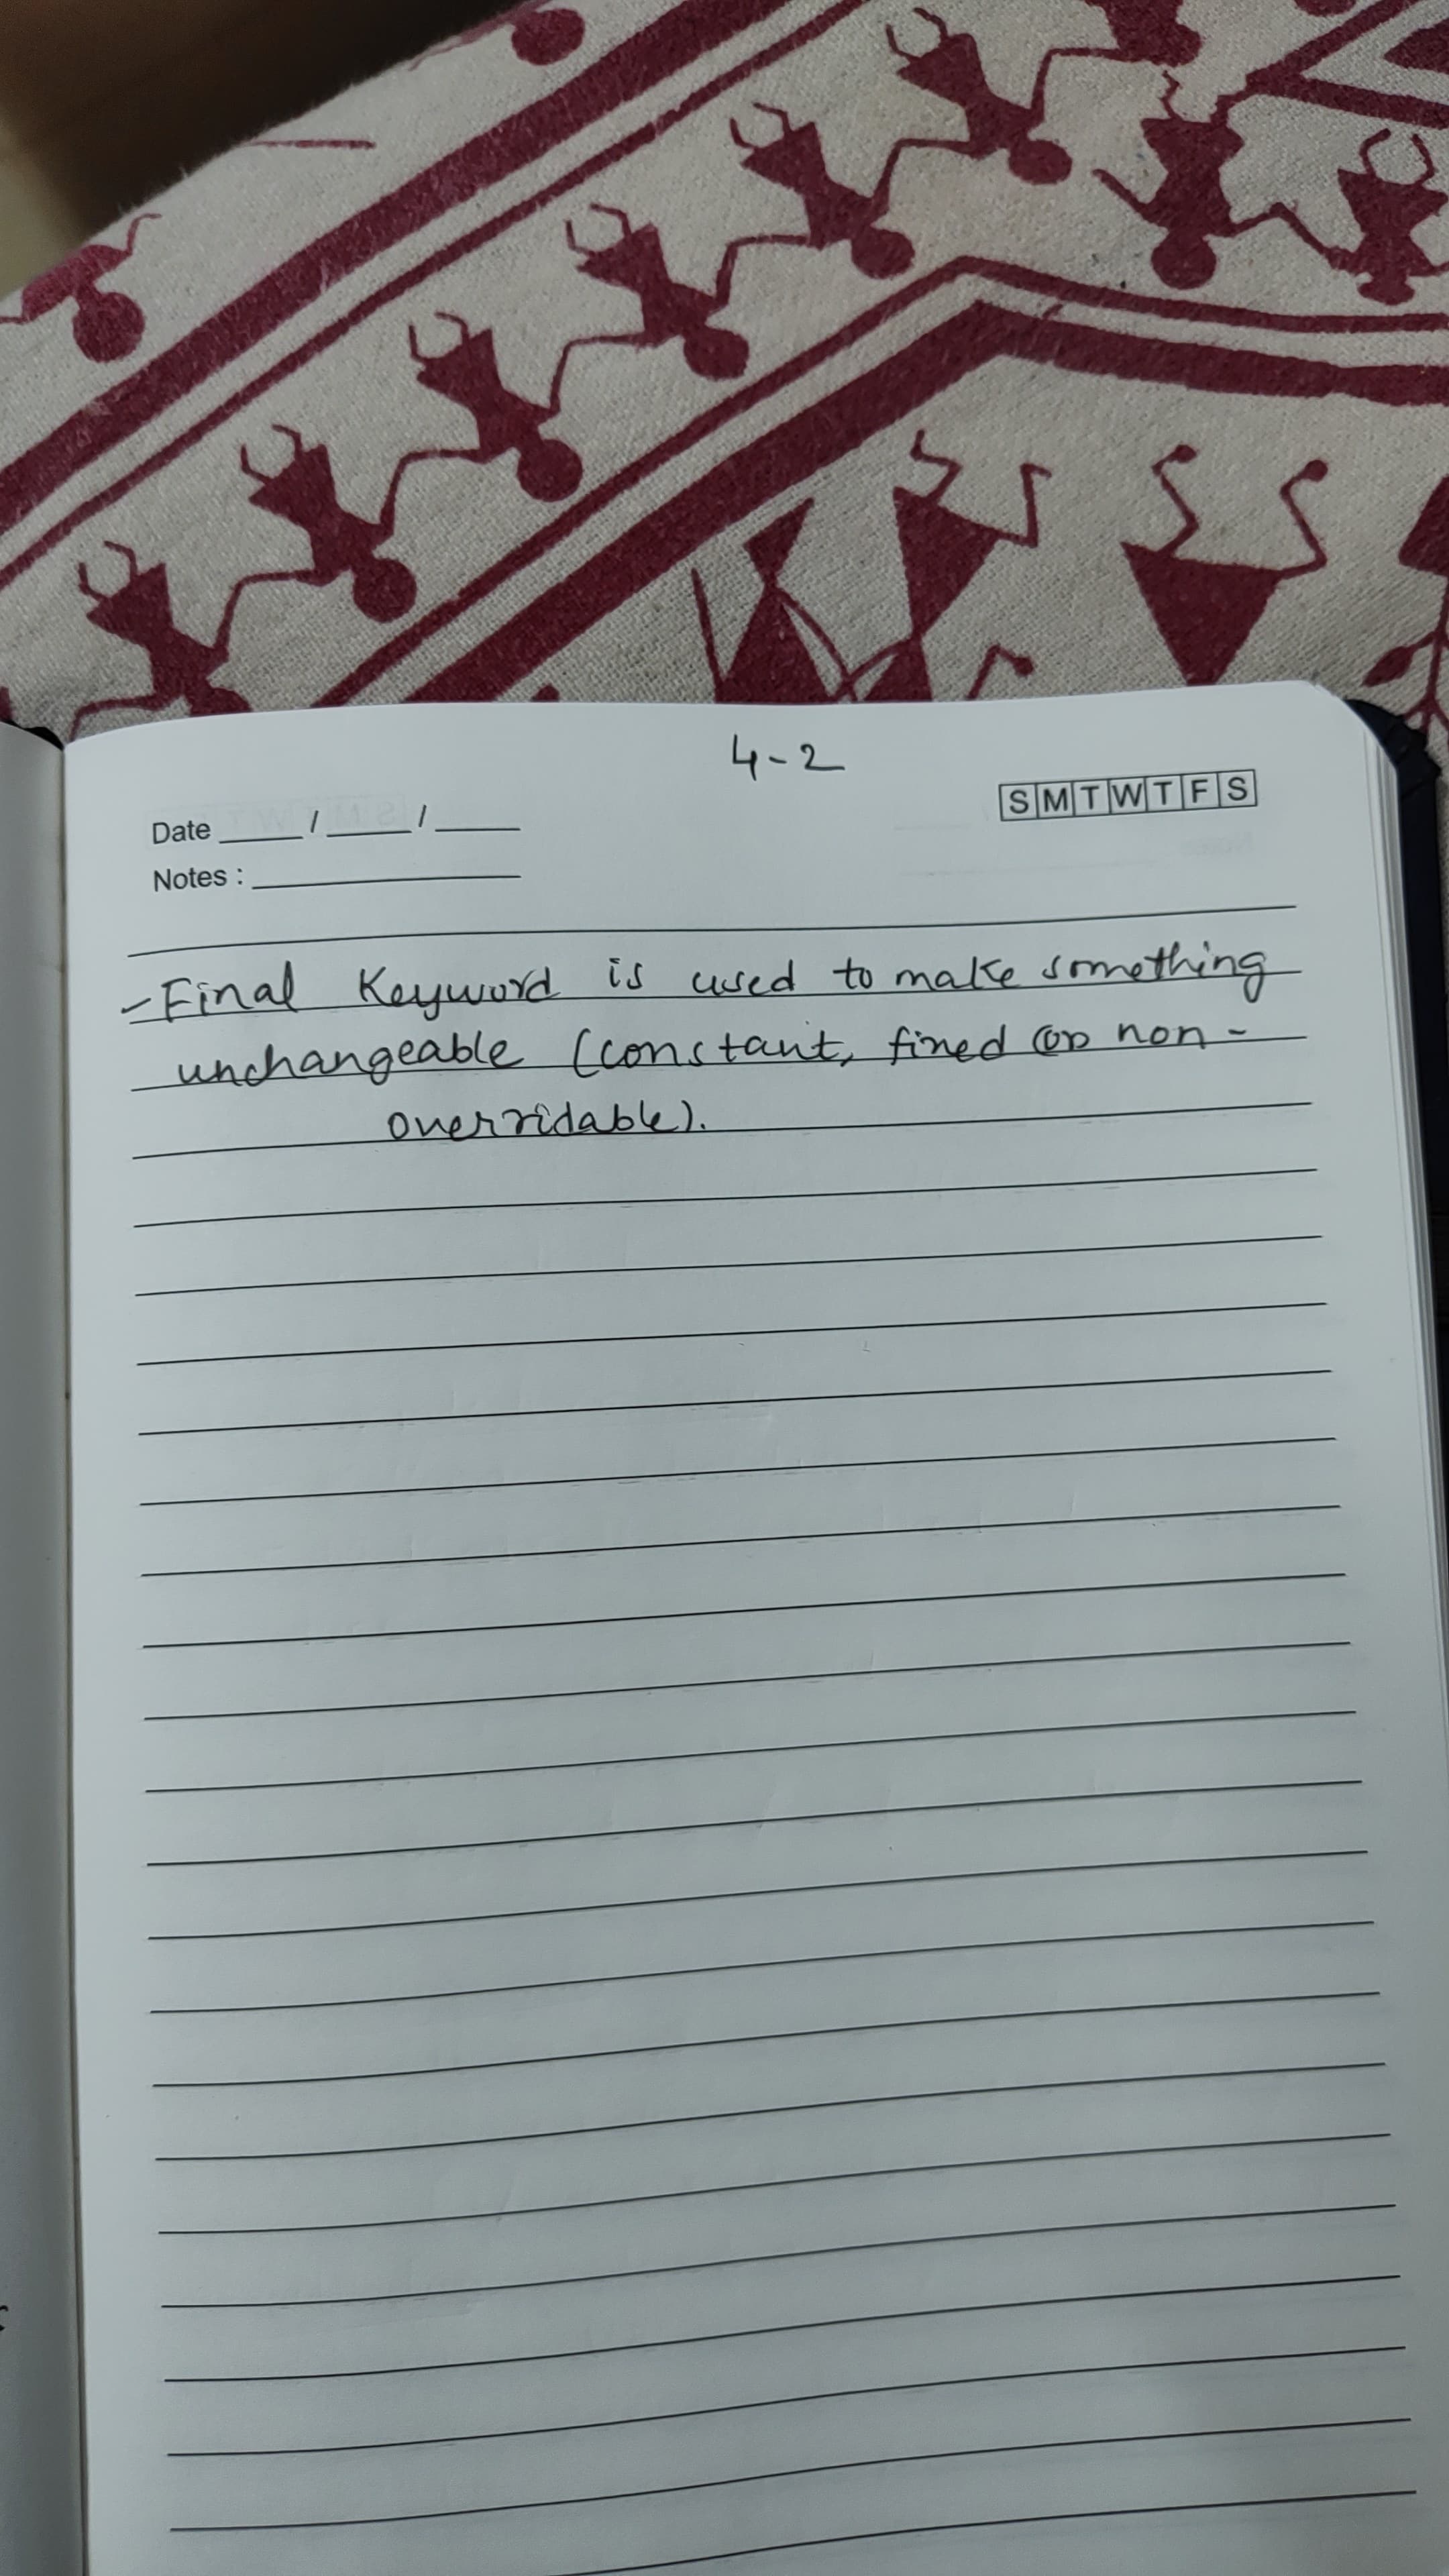 4-2
S M T W T F S
Date ____ / ____ / ____
Notes : ____
- Final Keyword is used to make something
unchangeable (constant, fixed or non-
overridable).